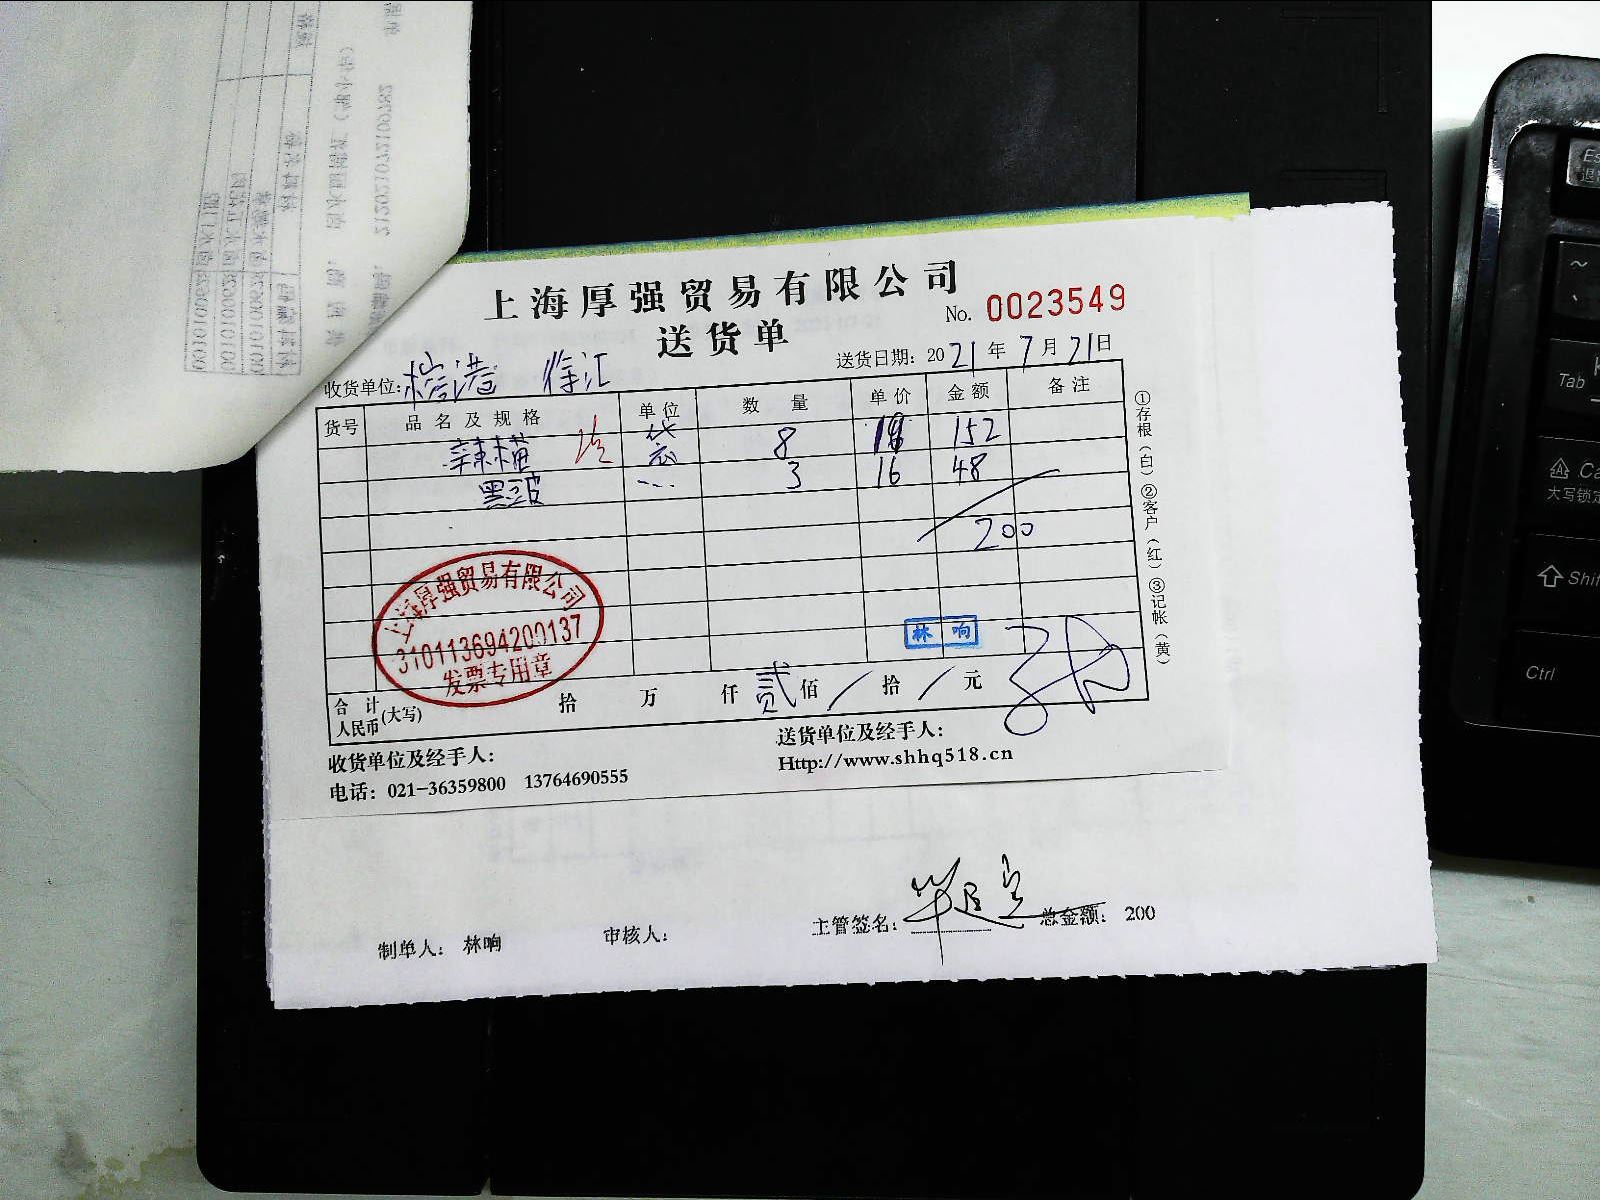 上海厚强贸易有限公司
No. 0023549
送货单
送货日期: 2021年7月21日
收货单位: 港 徐汇
货号 品名及规格 单位 数量 单价 金额 备注
辣椒 袋 8 19 152
黑豆皮 16 48 3
200
上海厚强贸易有限公司
310113694200137
发票专用章
林响
合计人民币(大写) 拾 万 仟 贰佰 拾 元
①存根(白)②客户(红)③记帐(黄)
收货单位及经手人:
送货单位及经手人:
电话: 021-36359800 13764690555
Http://www.shhq518.cn
制单人: 林响 审核人: 主管签名: 总金额: 200
212021072109782
Esc
~
Tab
大写锁定
Shift
Ctrl